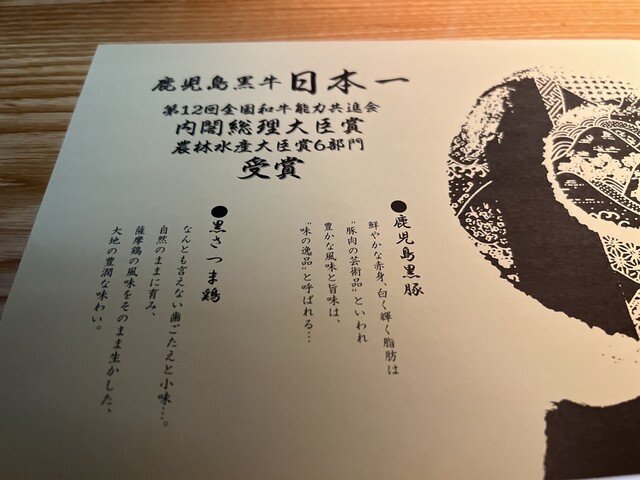 鹿児島黒牛 日本一
第12回全国和牛能力共進会
内閣総理大臣賞
農林水産大臣賞6部門
受賞
●鹿児島黒豚
鮮やかな赤身、白く輝く脂肪は
"豚肉の芸術品"といわれ
豊かな風味と旨味は、
"味の逸品"と呼ばれる…
●黒さつま鶏
なんとも言えない歯ごたえと小味…。
自然のままに育み、
薩摩鶏の風味をそのまま生かした、
大地の豊潤な味わい。